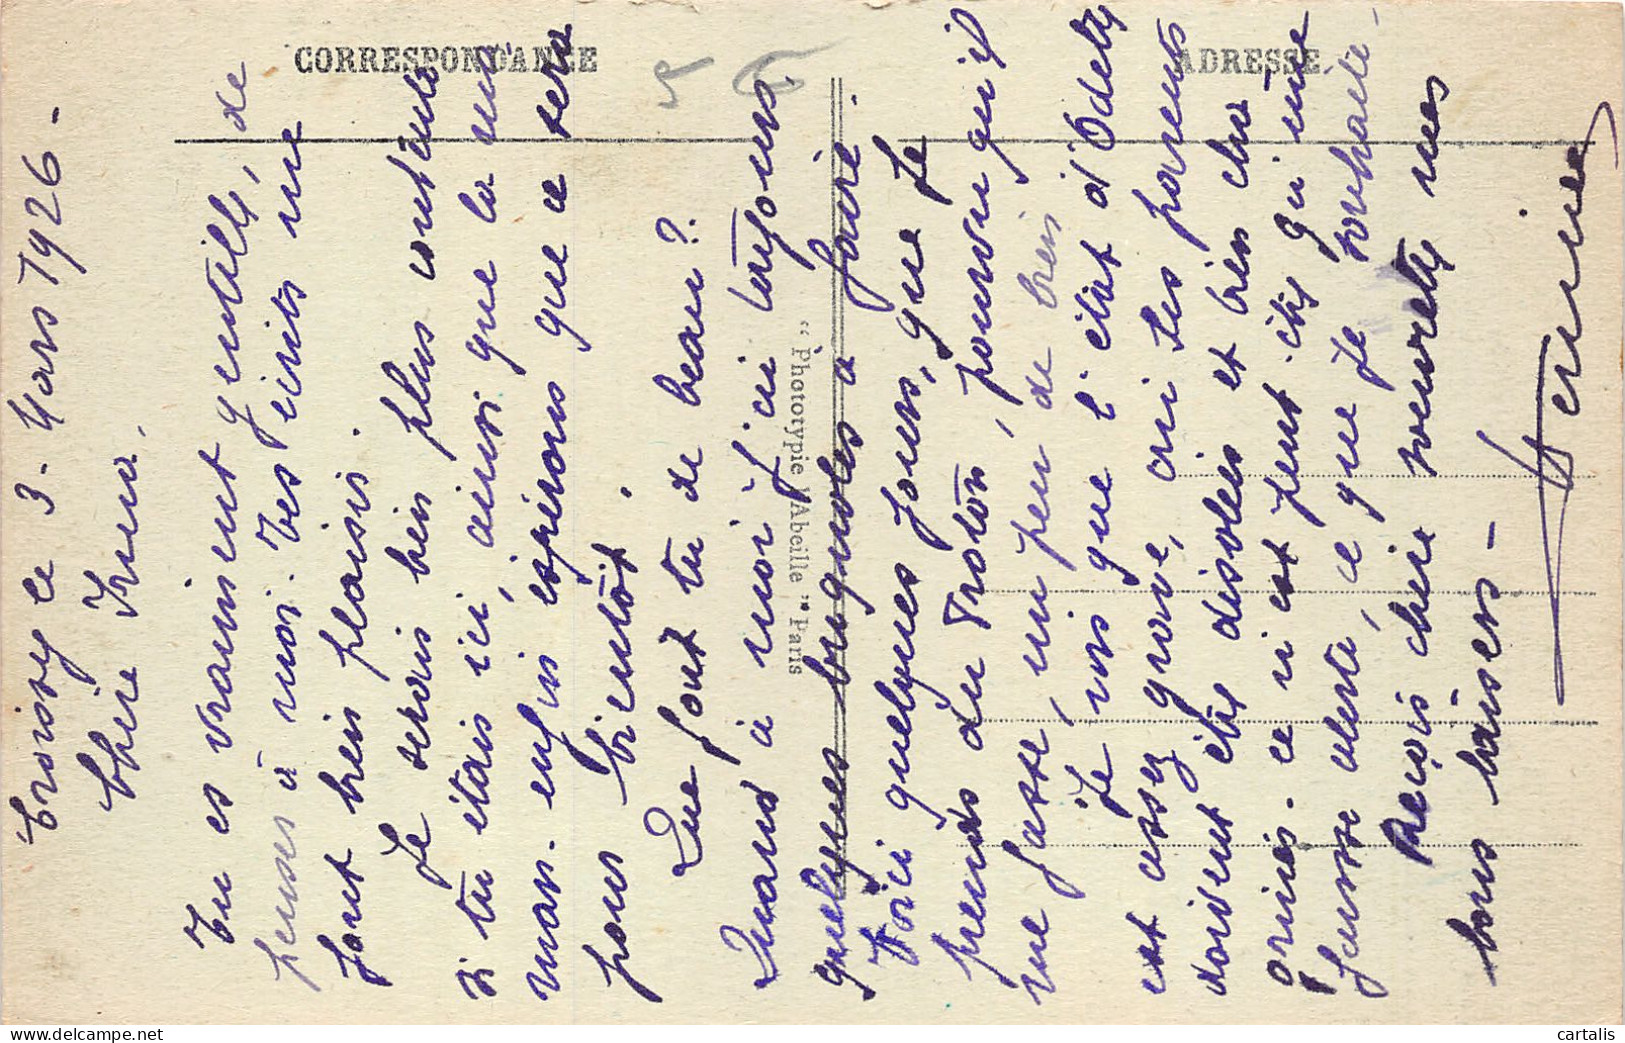 CORRESPONDANCE
ADRESSE
"Phototypie l'Abeille" Paris
Croissy le 3. Mars 1926 -
Chère Irma,
Tu es vraiment gentille, de
penser à moi. Tes écrits me
font bien plaisir.
Je serais bien plus contente
si tu étais ici, ainsi que la mè
man. enfin espérons que ce sera
pour bientôt.
Que fout tu de beau?
Quand à moi j'ai toujours
quelques bricoles à faire.
Voici quelques jours, que je
prends du Trolon, pourvu qu'il
me fasse, un peu de bien
Je vois que l'état d'Odette
est assez grave, ou ses parents
doivent être désolés et bien cha
grinés. ce n'est peut être qu'une
fausse alerte, ce que je souhaite -
Reçois chère sourette mes
bons baisers -
Hermine
cartalis